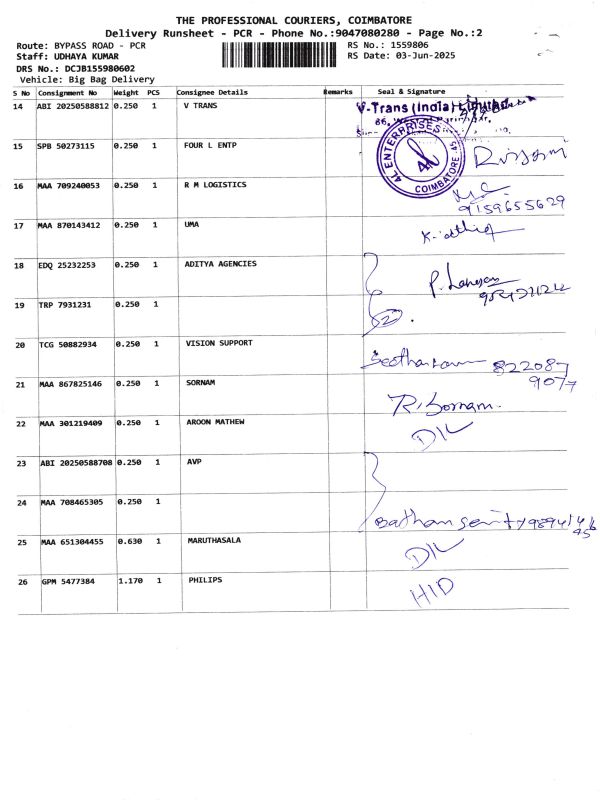 THE PROFESSIONAL COURIERS, COIMBATORE
Delivery Runsheet - PCR - Phone No.:9047080280 - Page No.:2
Route: BYPASS ROAD - PCR RS No.: 1559806
Staff: UDHAYA KUMAR RS Date: 03-Jun-2025
DRS No.: DCJB155980602
Vehicle: Big Bag Delivery
S No Consignment No Weight PCS Consignee Details Remarks Seal & Signature
14 ABI 20250588812 0.250 1 V TRANS V-Trans (India) Limited
86,
15 SPB 50273115 0.250 1 FOUR L ENTP 4L ENTERPRISES COIMBATORE 45 4L
16 MAA 709240053 0.250 1 R M LOGISTICS
9159655629
17 MAA 870143412 0.250 1 UMA
18 EDQ 25232253 0.250 1 ADITYA AGENCIES
19 TRP 7931231 0.250 1 2
20 TCG 50882934 0.250 1 VISION SUPPORT 822087
9077
21 MAA 867825146 0.250 1 SORNAM R. Sornam
22 MAA 301219409 0.250 1 AROON MATHEW D/L
23 ABI 20250588708 0.250 1 AVP
24 MAA 708465305 0.250 1
25 MAA 651304455 0.630 1 MARUTHASALA D/L
26 GPM 5477384 1.170 1 PHILIPS H/D